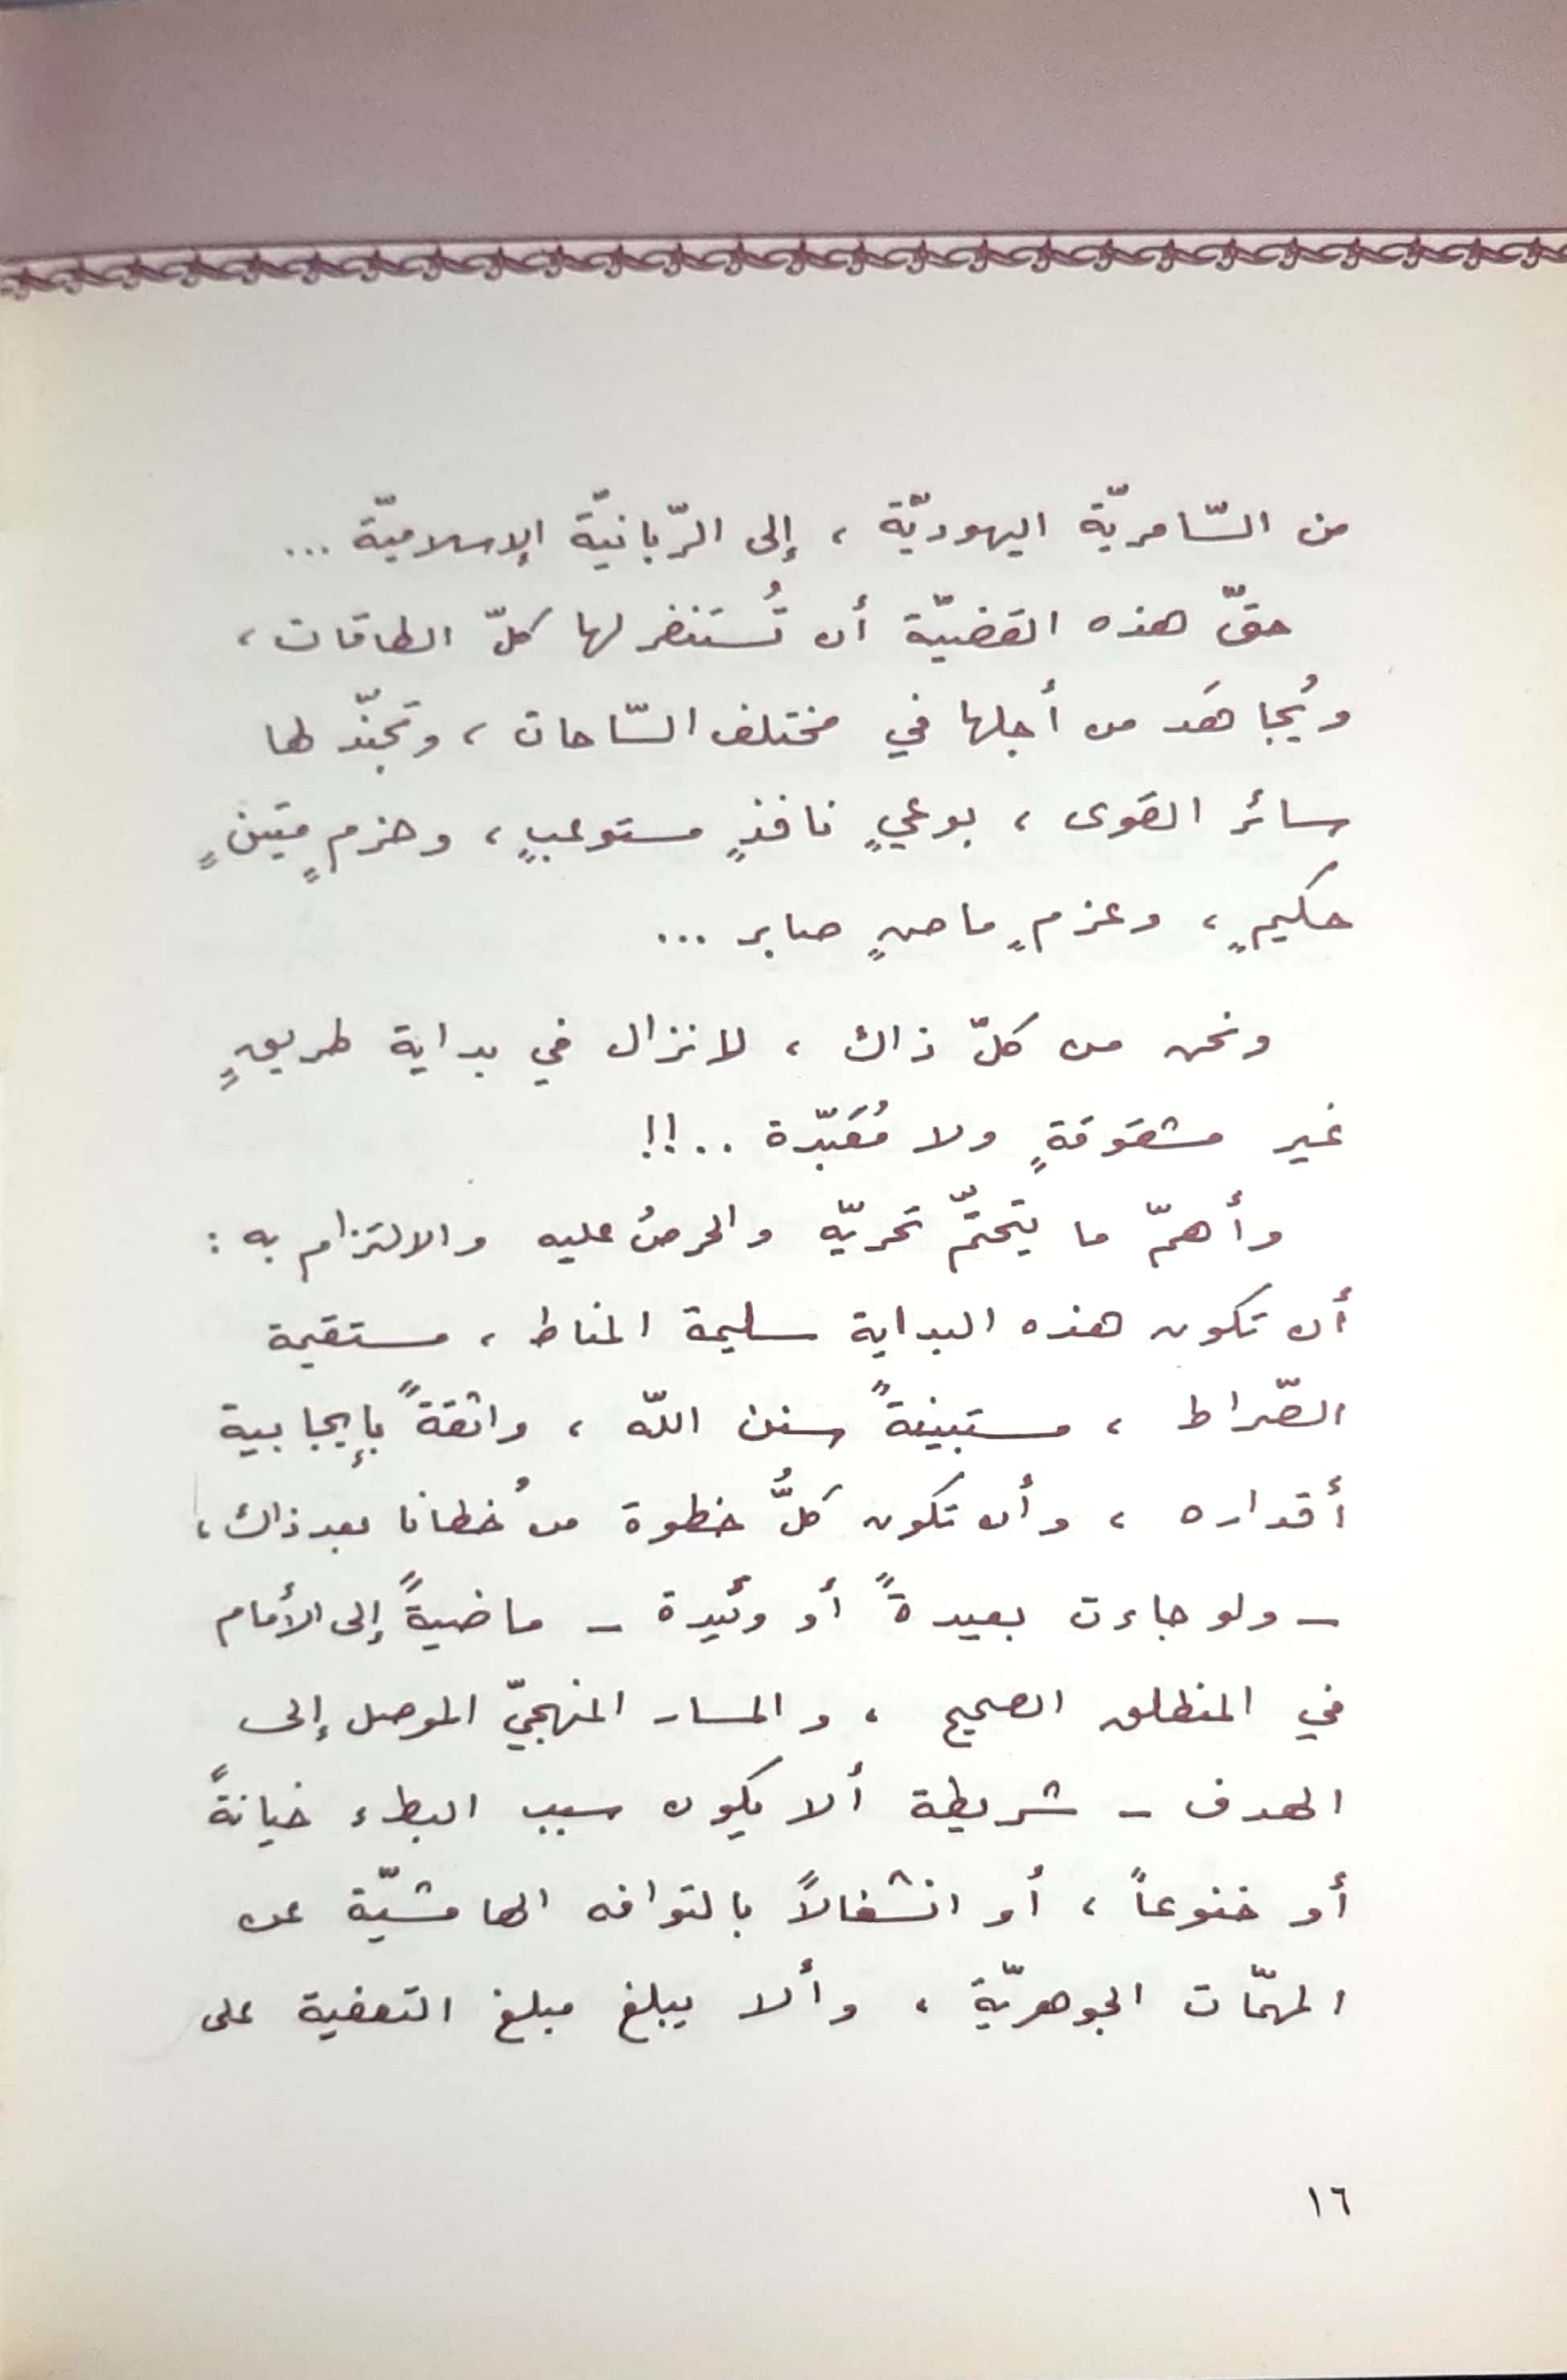 من السّامريّة اليهوديّة ، إلى الرّبانيّة الإسلاميّة ...
حقّ هذه القضيّة أن تُستَنفر لها كلّ الطاقات ،
ويُجاهَد من أجلها في مختلف السّاحات ، وتجنّد لها
سائر القوى ، بوعيٍ نافذٍ مستوعبٍ ، وحزمٍ متينٍ
حكيمٍ ، وعزمٍ ماضٍ صابر ...
ونحن من كلّ ذاك ، لا نزال في بداية طريقٍ
غير مشقوقةٍ ولا مُعَبّدة ..!!
وأهمّ ما يتحتّم تحريّه والحرصُ عليه والالتزام به :
أن تكون هذه البداية سليمة المناط ، مستقيمة
الصّراط ، مستبينةً سنن اللّه ، واثقةً بإيجابية
أقداره ، وأن تكون كلُّ خطوة من خُطانا بعد ذاك ،
– ولو جاءت بعيدةً أو وئيدة – ماضيةً إلى الأمام
في المنطلق الصحيح ، والمسار المنهجيّ الموصل إلى
الهدف – شريطة ألا يكون سبب البطء خيانةً
أو خنوعاً ، أو انشغالاً بالتوافه الهامشيّة عن
المهمّات الجوهريّة ، وألا يبلغ مبلغ التعفية على
١٦